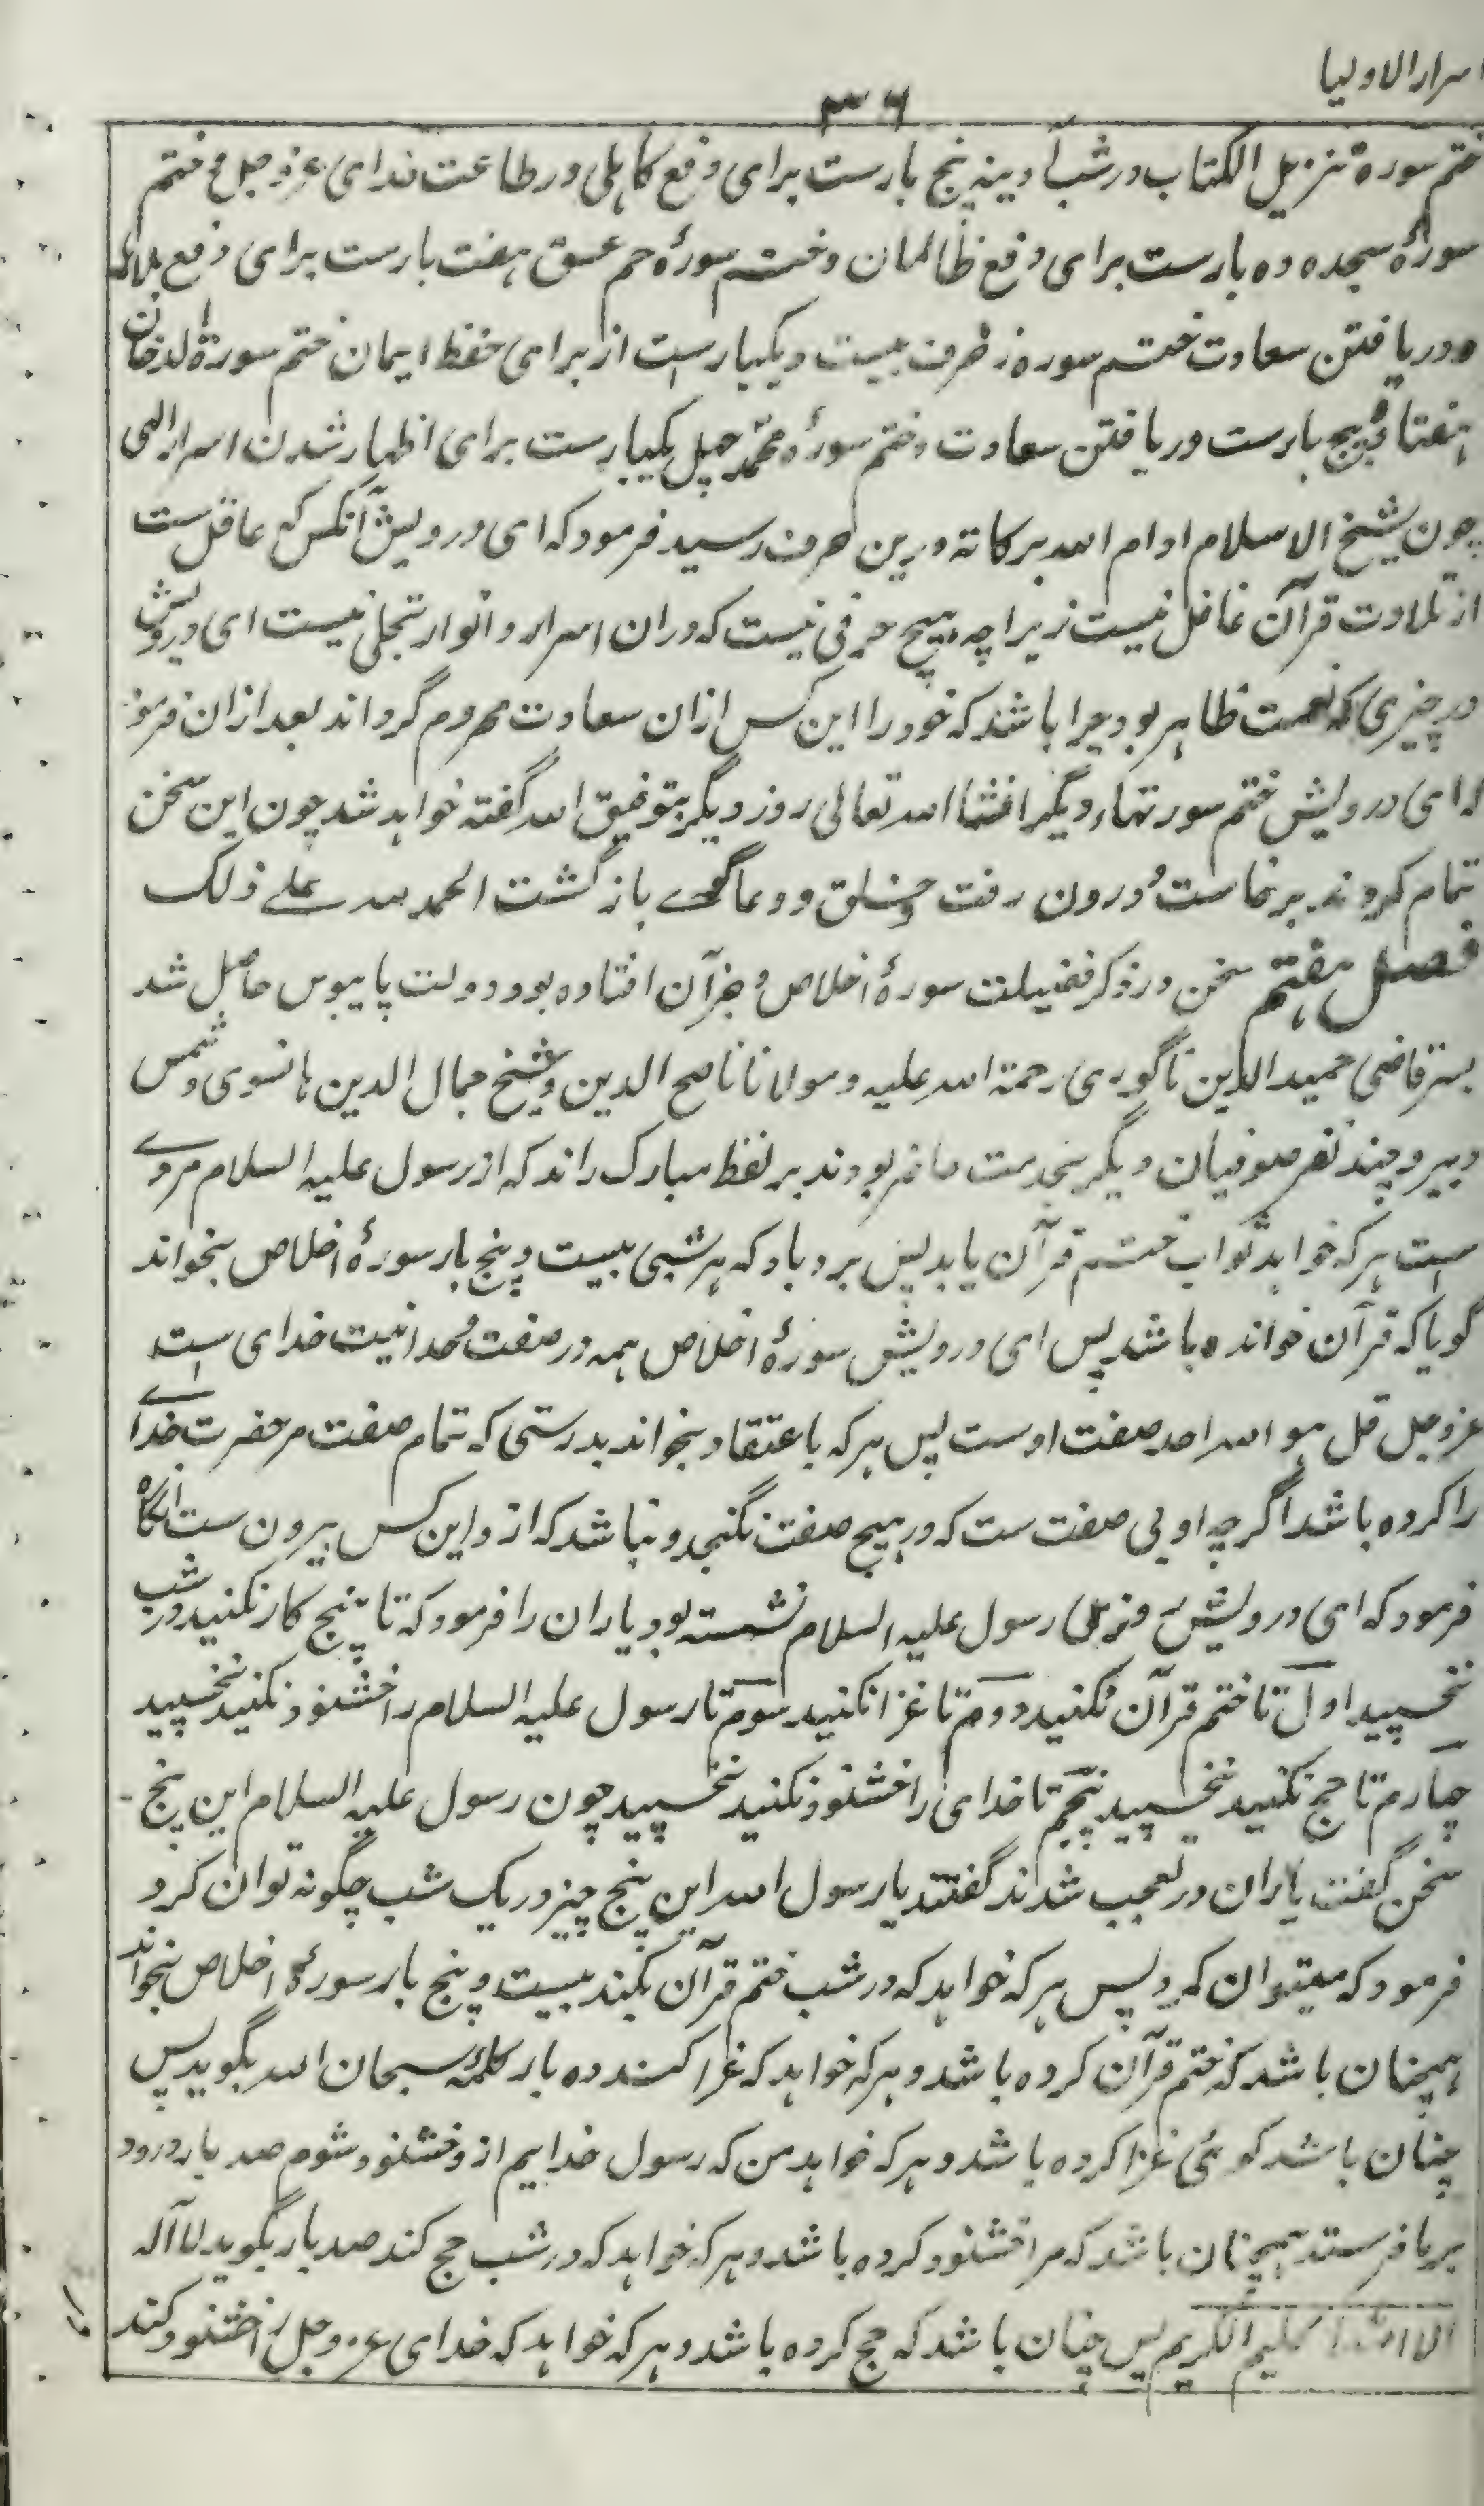 اسرار الاولیا
۳۶
ختم سورة تنزیل الکتاب در شب آدینه پنج بارست برای دفع کاهلی در طاعت خدای عزوجل و ختم
سورهٔ سجده ده بارست برای دفع ظالمان و ختم سورهٔ حم عسق هفت بارست برای دفع بلاها
و دریافتن سعادت ختم سوره زخرف بیست و یکبار است از برای حفظ ایمان ختم سورة الدخان
هفتاد و پنج بارست دریافتن سعادت و ختم سورهٔ محمد چهل یکبارست برای اظهار شدن اسرار الهی
چون شیخ الاسلام ادام الله برکاته درین حرف رسید فرمود که ای درویش آنکس که عاقل ست
از تلاوت قرآن غافل نیست زیراچه هیچ حرفی نیست که دران اسرار و انوار تجلی نیست ای درویش
در چیزی که نعمت ظاهر بود چرا باشد که خود را این کس ازان سعادت محروم گرداند بعد ازان فرمود
که ای درویش ختم سورتهاء دیگر انشا الله تعالی روز دیگر بتوفیق الله گفته خواهد شد چون این سخن
تمام کردند برخاست و درون رفت و خلق و دعاگوے بازگشت الحمد لله علے ذلک
فصل هفتم سخن در ذکر فضیلت سورهٔ اخلاص و جز آن افتاده بود دولت پایبوس حاصل شد
پسر قاضی حمید الدین ناگوری رحمة الله علیه و مولانا ناصح الدین و شیخ جمال الدین هانسوی و شمس
دبیر و چند نفر صوفیان دیگر بخدمت حاضر بودند بر لفظ مبارک راند که از رسول علیه السلام مروے
است هر که خواهد ثواب ختم قرآن یابد پس برو باد که هر شبی بیست و پنج بار سورهٔ اخلاص بخواند
گویا که قرآن خوانده باشد پس ای درویش سورهٔ اخلاص همه در صفت وحدانیت خدای است
عزوجل قل هو الله احد صفت اوست پس هر که باعتقاد بخواند بدرستی که تمام صفت مر حضرت خداے
را کرده باشد اگرچه او بی صفت ست که در هیچ صفت نگنجد و نباشد که از و این کس بیرون ست آنگاه
فرمود که ای درویش وقتی رسول علیه السلام نشسته بود یاران را فرمود که تا پنج کار نکنید در شب
نخسپید اول تا ختم قرآن نکنید دوم تا غزا نکنید سوم تا رسول علیه السلام را خشنود نکنید نخسپید
چهارم تا حج نکنید نخسپید پنجم تا خدای را خشنود نکنید نخسپید چون رسول علیه السلام این پنج
سخن گفت یاران در تعجب شدند گفتند یا رسول الله این پنج چیز در یک شب چگونه توان کرد
فرمود که میتوان کرد پس هر که خواهد که در شب ختم قرآن بکند بیست و پنج بار سورهٔ اخلاص بخواند
همچنان باشد که ختم قرآن کرده باشد و هر که خواهد که غزا کند ده بار کلمهٔ سبحان الله بگوید پس
چنان باشد گوئی غزا کرده باشد و هر که خواهد من که رسول خدایم از و خشنود شوم صد بار درود
بر ما فرستد همچنان باشد که مرا خشنود کرده باشد و هر که خواهد که در شب حج کند صد بار بگوید لا اله
الا الله الکریم پس چنان باشد که حج کرده باشد و هر که خواهد که خدای عزوجل را خشنود کند